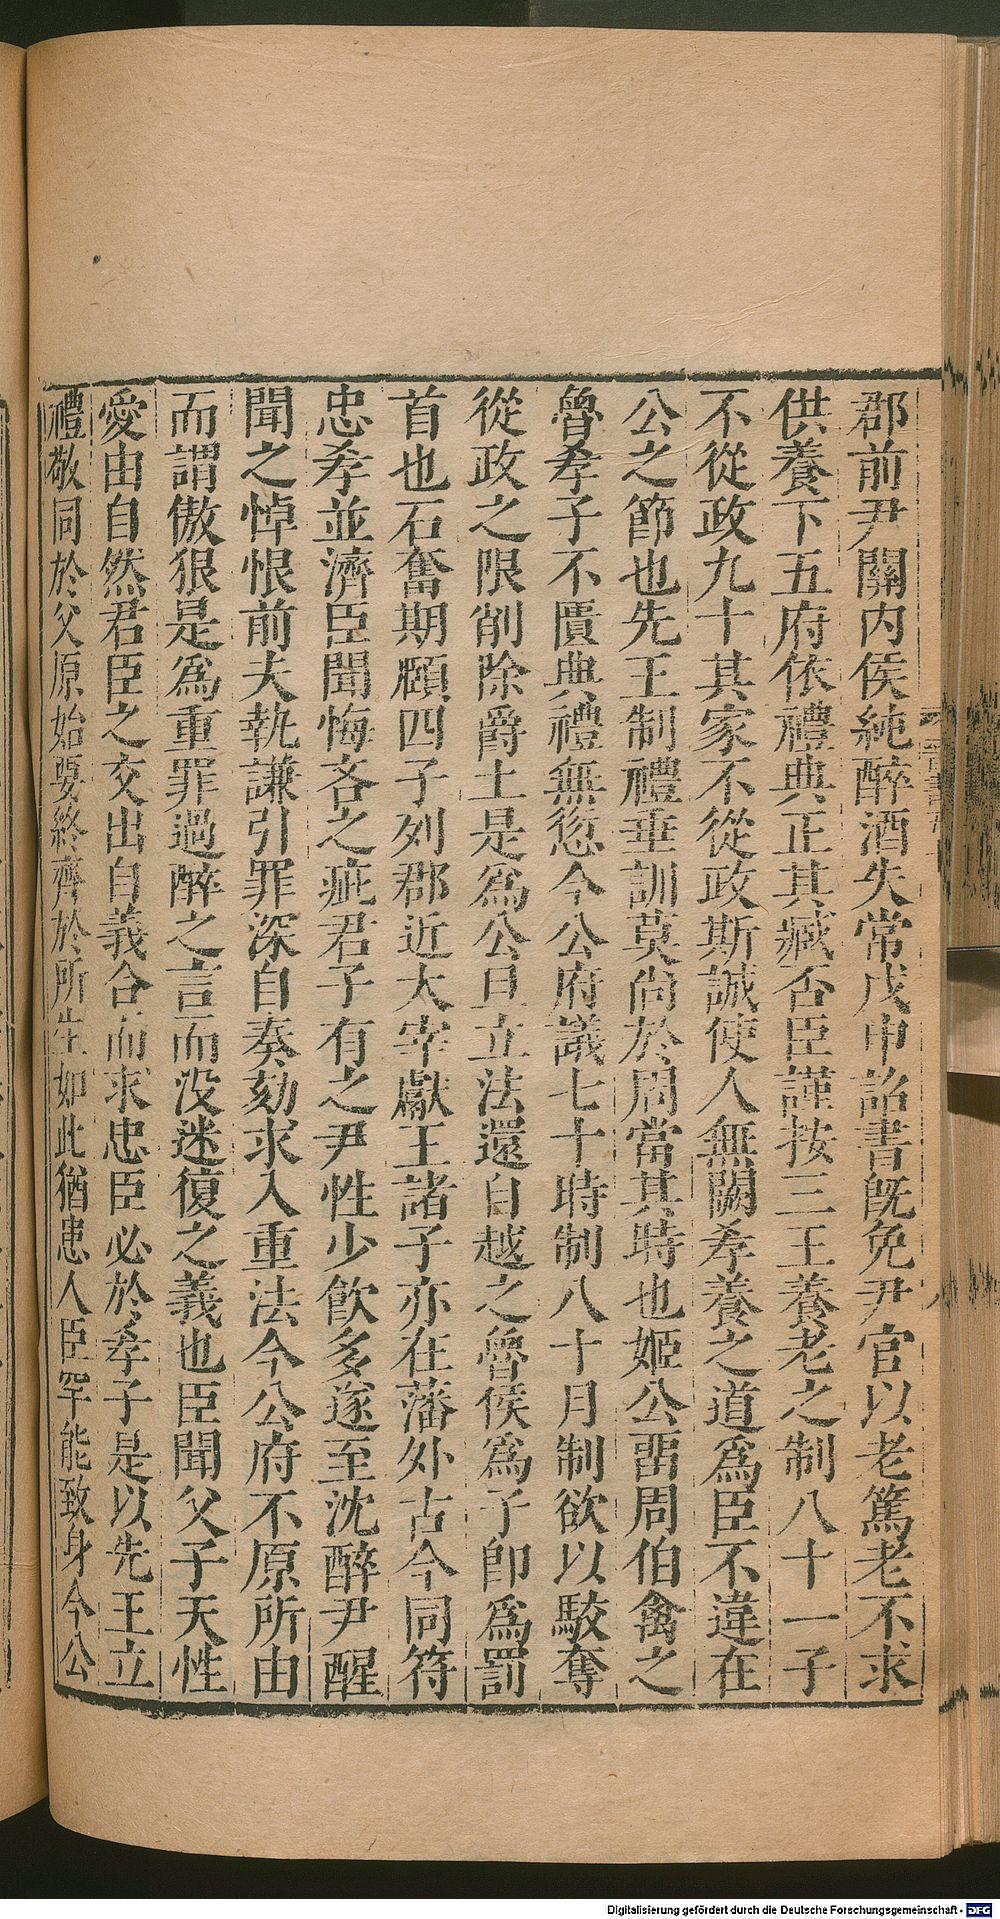 郡前尹關内侯純醉酒失常戊申詔書旣免尹官以老篤老不求
供養下五府依禮典正其臧否臣謹按三王養老之制八十一子
不從政九十其家不從政斯誠使人無闕孝養之道爲臣不違在
公之節也先王制禮垂訓莫尚於周當其時也姬公畱周伯禽之
魯孝子不匱典禮無愆今公府議七十時制八十月制欲以駮奪
從政之限削除爵土是爲公旦立法還自越之魯侯爲子卽爲罰
首也石奮期頤四子列郡近太宰獻王諸子亦在藩外古今同符
忠孝並濟臣聞悔吝之疵君子有之尹性少飮多遂至沈醉尹醒
聞之悼恨前夫執謙引罪深自奏劾求入重法今公府不原所由
而謂傲狠是爲重罪過醉之言而没迷復之義也臣聞父子天性
愛由自然君臣之交出自義合而求忠臣必於孝子是以先王立
禮敬同於父原始要終齊於所生如此猶患人臣罕能致身今公
Digitalisierung gefördert durch die Deutsche Forschungsgemeinschaft - DFG